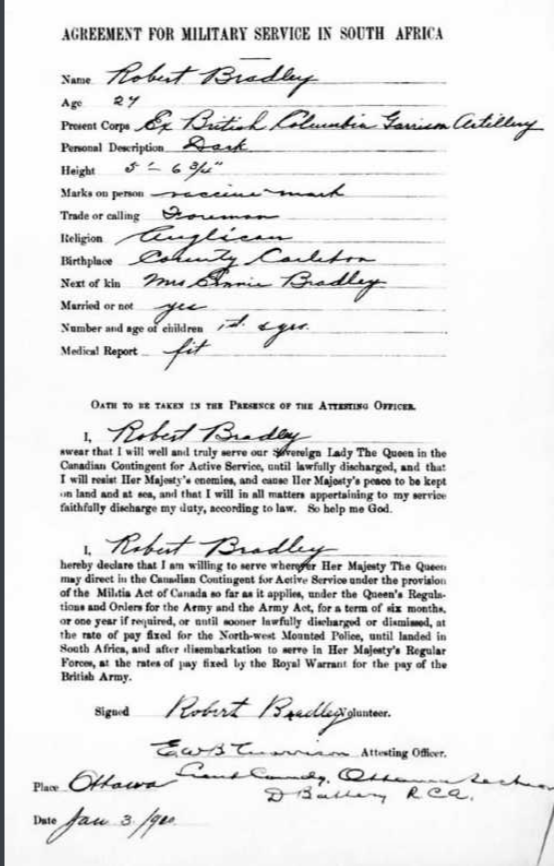 AGREEMENT FOR MILITARY SERVICE IN SOUTH AFRICA
Name Robert Bradley
Age 24
Present Corps Ex British Columbia Garrison Artillery
Personal Description Dark
Height 5' - 6 3/4"
Marks on person vaccine mark
Trade or calling Foreman
Religion Anglican
Birthplace County Carleton
Next of kin Mrs Annie Bradley
Married or not yes
Number and age of children yrs.
Medical Report fit
OATH TO BE TAKEN IN THE PRESENCE OF THE ATTESTING OFFICER.
I, Robert Bradley
swear that I will well and truly serve our Sovereign Lady The Queen in the
Canadian Contingent for Active Service, until lawfully discharged, and that
I will resist Her Majesty's enemies, and cause Her Majesty's peace to be kept
on land and at sea, and that I will in all matters appertaining to my service
faithfully discharge my duty, according to law. So help me God.
I, Robert Bradley
hereby declare that I am willing to serve wherever Her Majesty The Queen
may direct in the Canadian Contingent for Active Service under the provision
of the Militia Act of Canada so far as it applies, under the Queen's Regula-
tions and Orders for the Army and the Army Act, for a term of six months,
or one year if required, or until sooner lawfully discharged or dismissed, at
the rate of pay fixed for the North-west Mounted Police, until landed in
South Africa, and after disembarkation to serve in Her Majesty's Regular
Forces, at the rates of pay fixed by the Royal Warrant for the pay of the
British Army.
Signed Robert Bradley Volunteer.
E W B Morrison Attesting Officer.
Lieut Comndg. Ottawa Section
Place Ottawa D Battery R.C.A.
Date Jan 3. 1900